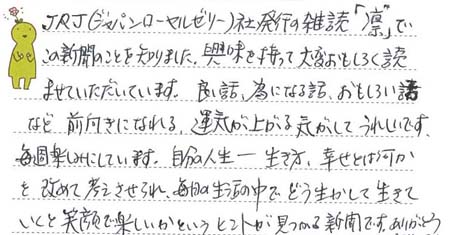 JRJ(ジャパンローヤルゼリー)社発行の雑誌「凛」で
この新聞のことを知りました。興味を持って大変おもしろく読
ませていただいています。良い話、為になる話、おもしろい話
など 前向きになれる、運気が上がる気がしてうれしいです。
毎週楽しみにしています。自分の人生ー生き方、幸せとは何か
を 改めて考えさせられ、毎日の生活の中で、どう生かして生きて
いくと笑顔で楽しいかというヒントが見つかる新聞です。ありがとう